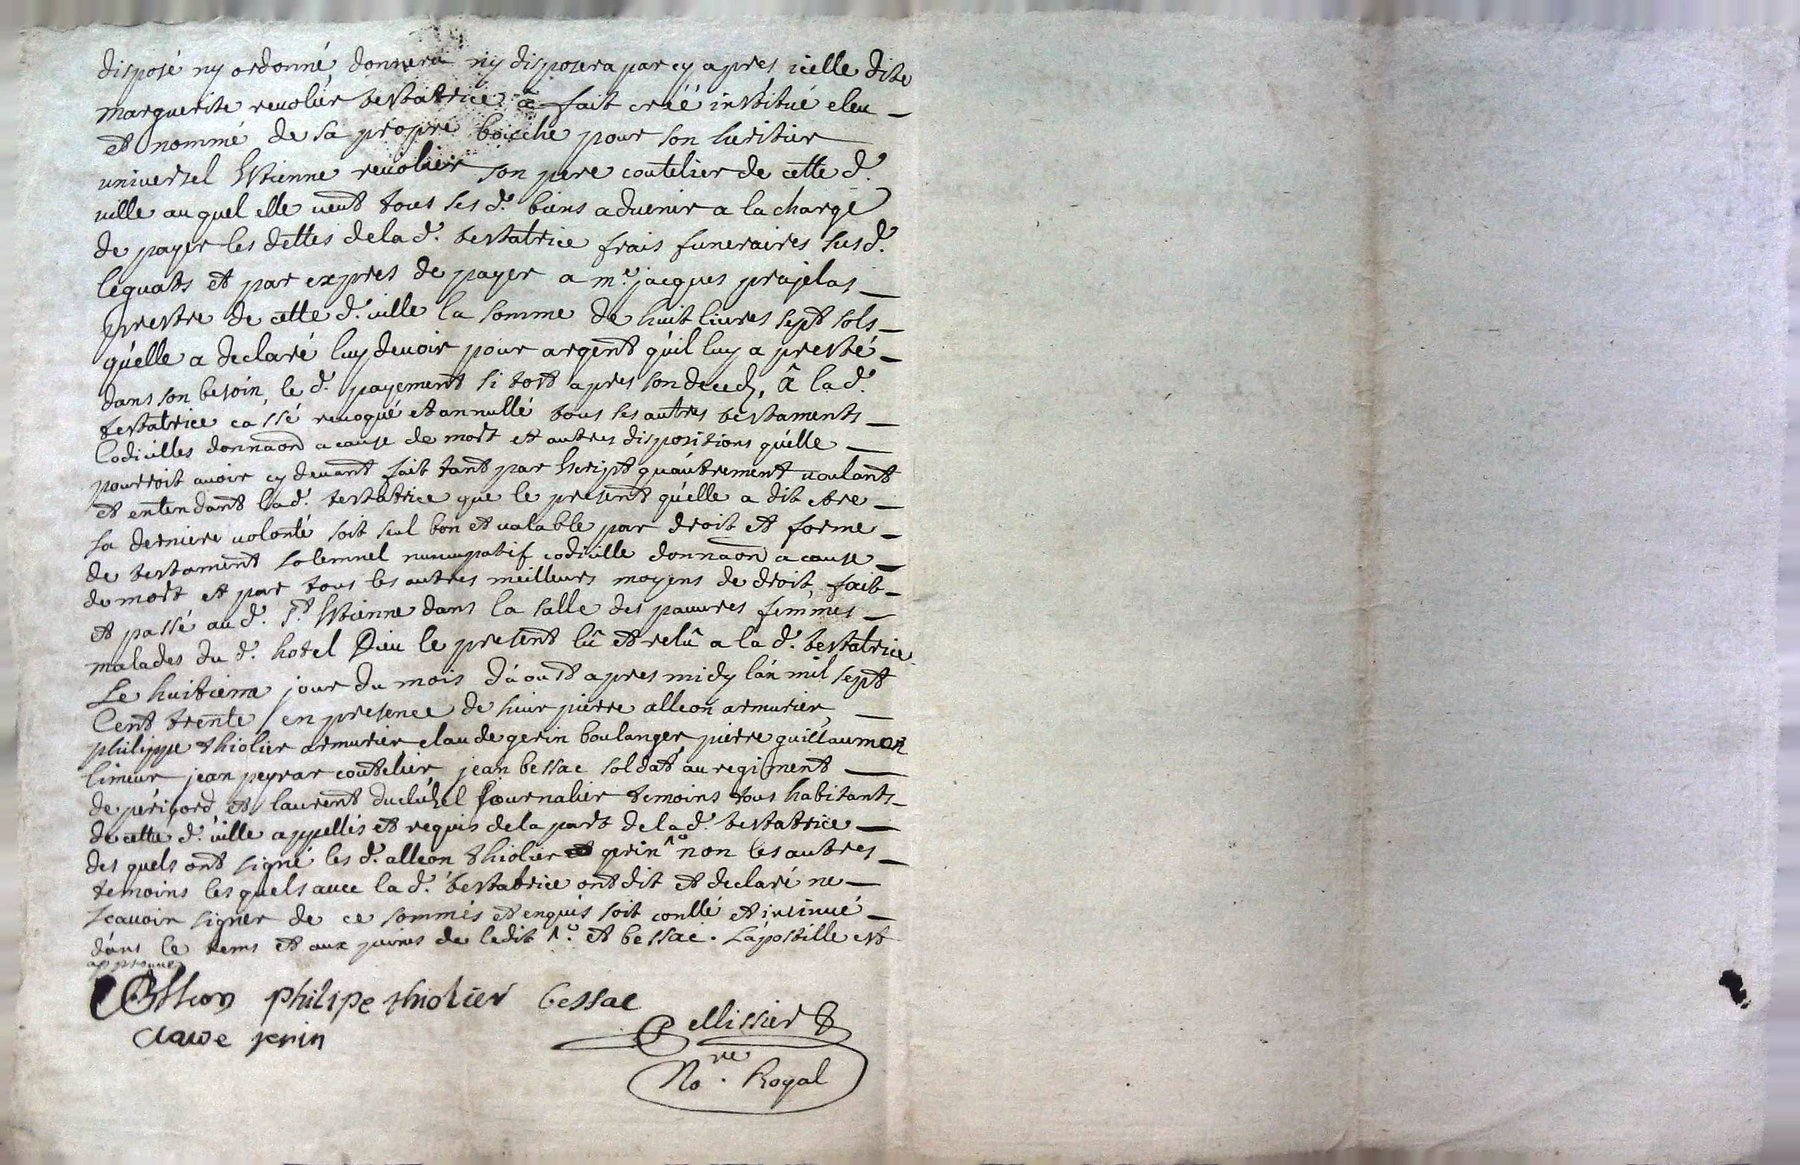 disposé ny ordonné, donnera ny disposera par cy apres, icelle dite
marguerite reuolier testatrice â fait créé institué eleu
et nommé de sa propre bouche pour son heritier
universel Estienne reuolier son pere coutelier de cette d.
ville au quel elle veut tous ses d. biens aduenir a la charge
de payer les dettes de la d. testatrice frais funeraires susd.
leguats et par expres de payer a m.e jacques prajelas
prestre de cette d. ville la somme de huit liures sept sols
qu'elle a declaré luy deuoir pour argent qu'il luy a presté
dans son besoin, le d. payement si tost apres son deced, â la d.
testatrice cassé reuoqué et annullé tous ses autres testaments
Codicilles donnaon a cause de mort et autres dispositions qu'elle
pourroit auoir cy deuant fait tant par Escript qu'autrement voulant
et entendant la d. testatrice que le present qu'elle a dit etre
sa derniere volonté soit seul bon et valable par droit et forme
de testament solemnel nuncupatif codicille donnaon a cause
de mort et par tous les autres meilleurs moyens de droit, fait
et passé au d. S.t Estienne dans la salle des pauures femmes
malades du d. hotel Dieu le present lû et relû a la d. testatrice
Le huitieme jour du mois d'aoust apres midy l'an mil sept
Cent trente / en presence de sieur pierre alleon armurier,
philippe thiolier armurier claude gerin boulanger, pierre guillaumon
limeur jean peyrar coutelier, jean bessac soldat au regiment
de périgord, et laurent duchel journalier temoins tous habitants
de cette d. ville appellés et requis de la part de la d. testatrice
des quels ont signé les d. alleon thiolier gerin non les autres
temoins les quels auec la d. testatrice ont dit et declaré ne
scauoir signer de ce sommés et enquis soit conllé et insinué
dans le tems et aux peines de ledit et bessac. L'apostille est
approuué
Alleon philipe thiolier bessac
clawe jerin
Pellissier
No.re Royal